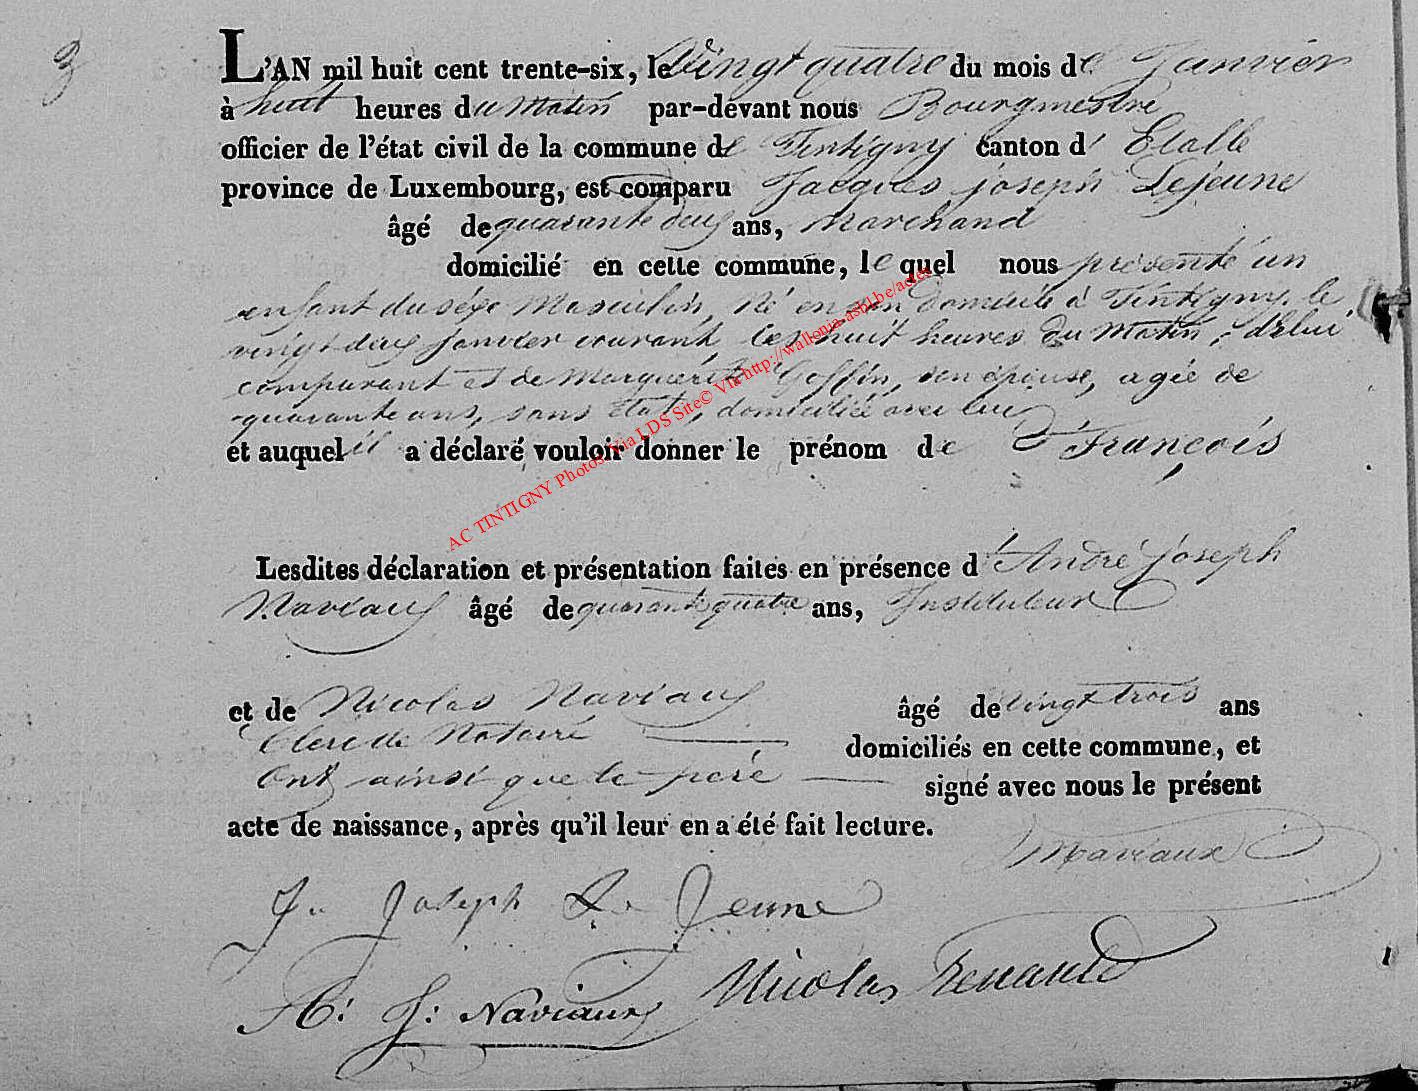 3
L'AN mil huit cent trente-six, le Vingt quatre du mois de Janvier
à huit heures du Matin par-dévant nous Bourgmestre
officier de l'état civil de la commune de Tintigny canton d' Etalle
province de Luxembourg, est comparu Jacques joseph Lejeune
âgé de quarante deux ans, Marchand
domicilié en cette commune, le quel nous présenté un
enfant du séxe Masculin, Né en son domicile à Tintigny, le
vingt deux janvier courant, les huit heures du Matin, de lui
comparant et de Marguerite Goffin, son épouse, agée de
quarante ans, sans Etat, domiciliée avec lui
et auquel il a déclaré vouloir donner le prénom de François
AC TINTIGNY Photos Via LDS Site© Via http://wallonia-asbl.be/actes
Lesdites déclaration et présentation faites en présence d'André joseph
Naviaux âgé de quarante quatre ans, Instituteur
et de Nicolas Naviaux âgé de vingt trois ans
Clerc de Notaire domiciliés en cette commune, et
Ont ainsi que le pere signé avec nous le présent
acte de naissance, après qu'il leur en a été fait lecture.
Naviaux
J. Joseph Le Jeune
A: J: Naviaux Nicolas Renauld